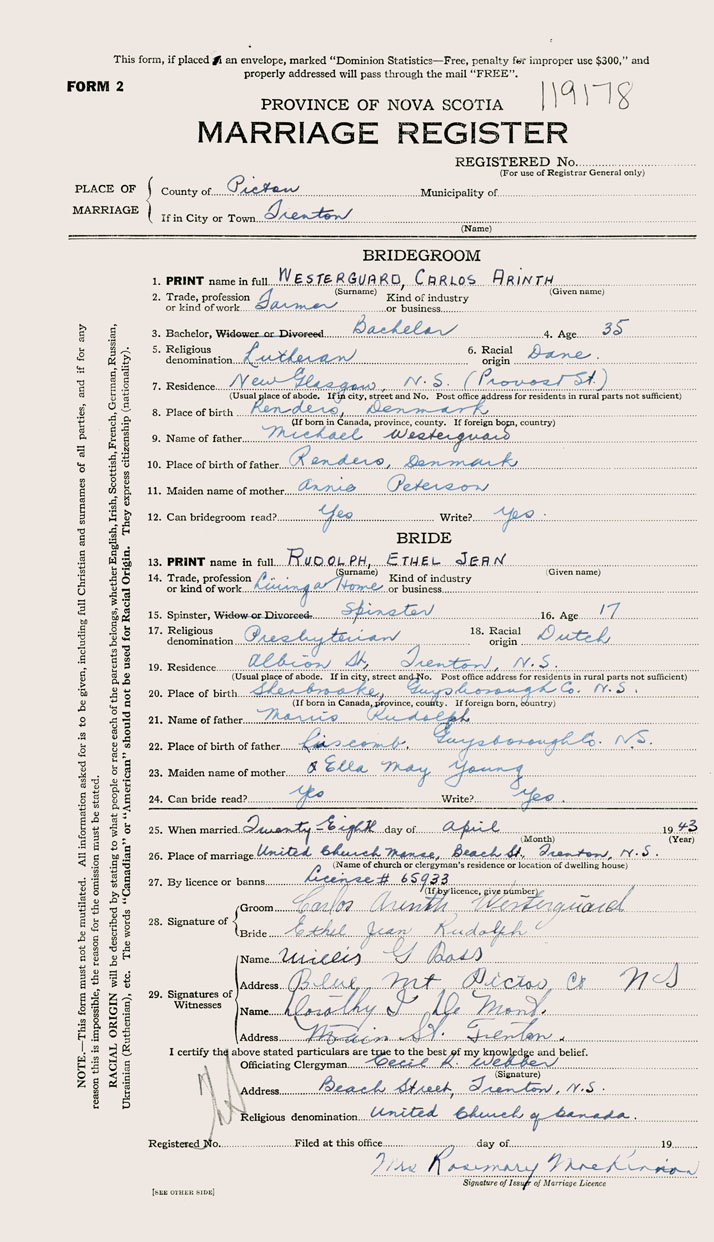 This form, if placed in an envelope, marked "Dominion Statistics—Free, penalty for improper use $300," and
properly addressed will pass through the mail "FREE".
FORM 2
119178
PROVINCE OF NOVA SCOTIA
MARRIAGE REGISTER
REGISTERED No.
(For use of Registrar General only)
PLACE OF MARRIAGE
County of Pictou Municipality of
If in City or Town Trenton
(Name)
BRIDEGROOM
1. PRINT name in full WESTERGUARD, CARLOS ARINTH
(Surname) (Given name)
2. Trade, profession or kind of work Farmer Kind of industry or business
3. Bachelor, Widower or Divorced Bachelor 4. Age 35
5. Religious denomination Lutheran 6. Racial origin Dane.
7. Residence New Glasgow, N.S. (Provost St.)
(Usual place of abode. If in city, street and No. Post office address for residents in rural parts not sufficient)
8. Place of birth Renders, Denmark
(If born in Canada, province, county. If foreign born, country)
9. Name of father Michael Westerguard
10. Place of birth of father Renders, Denmark
11. Maiden name of mother Annie Peterson
12. Can bridegroom read? Yes Write? Yes.
BRIDE
13. PRINT name in full RUDOLPH, ETHEL JEAN
(Surname) (Given name)
14. Trade, profession or kind of work Living at Home Kind of industry or business
15. Spinster, Widow or Divorced. Spinster 16. Age 17
17. Religious denomination Presbyterian 18. Racial origin Dutch
19. Residence Albion St, Trenton, N.S.
(Usual place of abode. If in city, street and No. Post office address for residents in rural parts not sufficient)
20. Place of birth Sherbrooke, Guysborough Co. N.S.
(If born in Canada, province, county. If foreign born, country)
21. Name of father Morris Rudolph
22. Place of birth of father Liscomb, Guysborough Co. N.S.
23. Maiden name of mother Ella May Young
24. Can bride read? Yes Write? Yes.
25. When married Twenty-Eighth day of April 1943
(Month) (Year)
26. Place of marriage United Church Manse, Beach St. Trenton, N.S.
(Name of church or clergyman's residence or location of dwelling house)
27. By licence or banns License # 65933
(If by licence, give number)
28. Signature of
Groom Carlos Arinth Westerguard
Bride Ethel Jean Rudolph
29. Signatures of Witnesses
Name Willis G Ross
Address Blue Mt Pictou Co N S
Name Dorothy I. De Mond.
Address Main St. Trenton.
I certify the above stated particulars are true to the best of my knowledge and belief.
Officiating Clergyman Cecil R. Webber
(Signature)
Address Beach Street, Trenton, N.S.
Religious denomination United Church of Canada.
Registered No. Filed at this office day of 19
Mrs Rosemary MacKinnon
Signature of Issuer of Marriage Licence
[SEE OTHER SIDE]
NOTE.—This form must not be mutilated. All information asked for is to be given, including full Christian and surnames of all parties, and if for any
reason this is impossible, the reason for the omission must be stated.
RACIAL ORIGIN will be described by stating to what people or race each of the parents belongs, whether English, Irish, Scottish, French, German, Russian,
Ukrainian (Ruthenian), etc. The words "Canadian" or "American" should not be used for Racial Origin. They express citizenship (nationality).